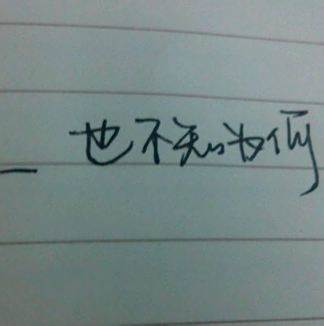 也不知为何